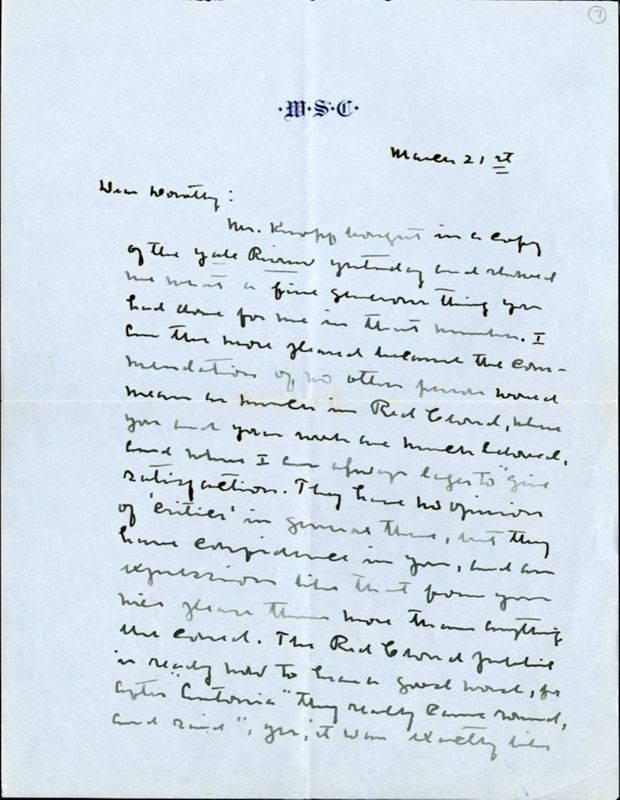 7
·W·S·C·
March 21st
Dear Dorothy:
Mr. Knopf brought in a copy
of the Yale Review yesterday and showed
me what a fine generous thing you
had done for me in that number. I
am the more pleased because the com-
mendation of no other person would
mean as much in Red Cloud, where
you and your work are much beloved,
and where I am always eager to "give
satisfaction. They have no opinion
of 'critics' in general there, but they
have confidence in you, and an
expression like that from you
will please them more than anything
else could. The Red Cloud public
is ready now to hear a good word, for
after "Antonia" they really came round,
and said, "yes, it was exactly like